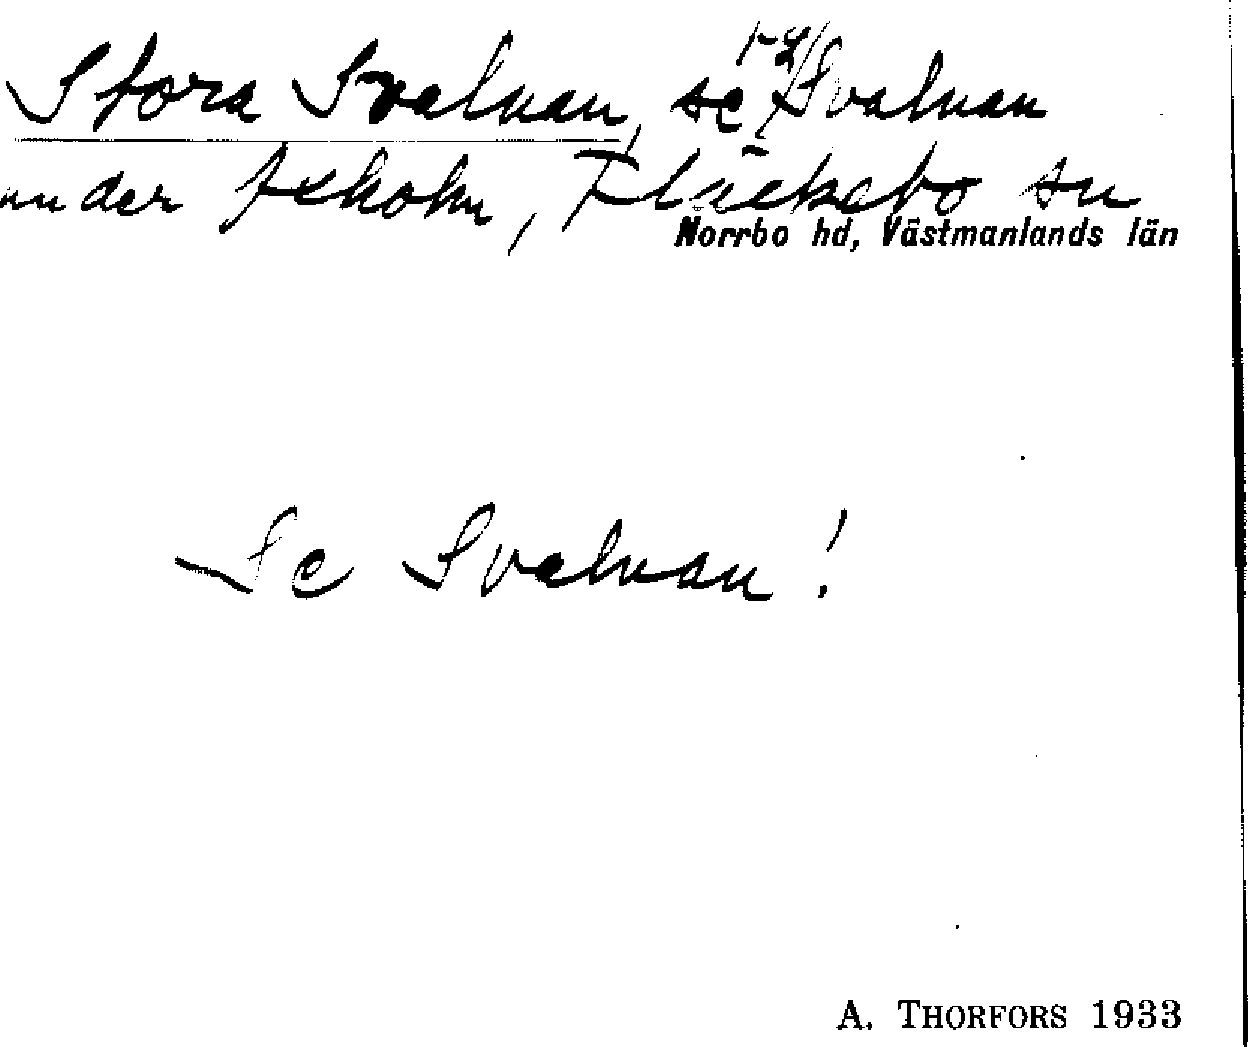 Stora Svalnan, se Svalnan
under Askholn, Fläckebo sn
Norrbo hd, Västmanlands län
Se Svalnan!
A. THORFORS 1933